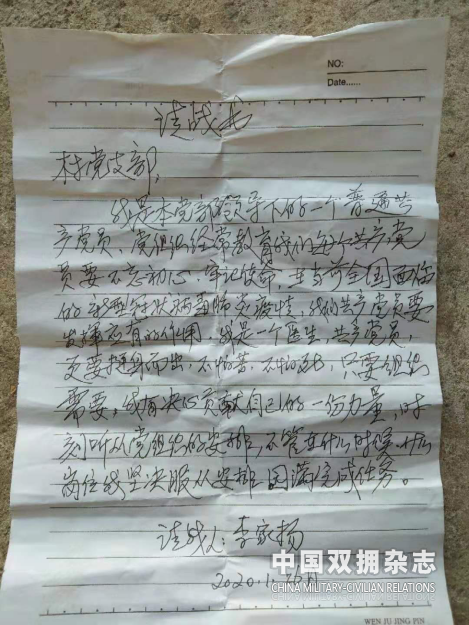 NO:
Date......
请战书
村党支部,
我是本党部领导下的一个普通共
产党员,党组织经常教育我们每个共产党
员要不忘初心,牢记使命,在当前全国面临
的新型冠状病毒肺炎疫情,我们共产党员要
发挥应有的作用。我是一个医生,共产党员,
更要挺身而出,不怕苦,不怕死,只要组织
需要,我有决心贡献自己的一份力量,时
刻听从党组织的安排,不管在什么时候,什么
岗位我坚决服从安排,圆满完成任务。
请战人:李家扬
2020.1.
中国双拥杂志
CHINA MILITARY-CIVILIAN RELATIONS
WEN JU JING PIN